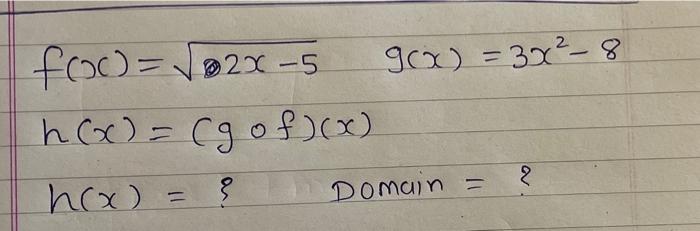 f(x) = √2x - 5 g(x) = 3x² - 8
h(x) = (g o f)(x)
h(x) = ? Domain = ?